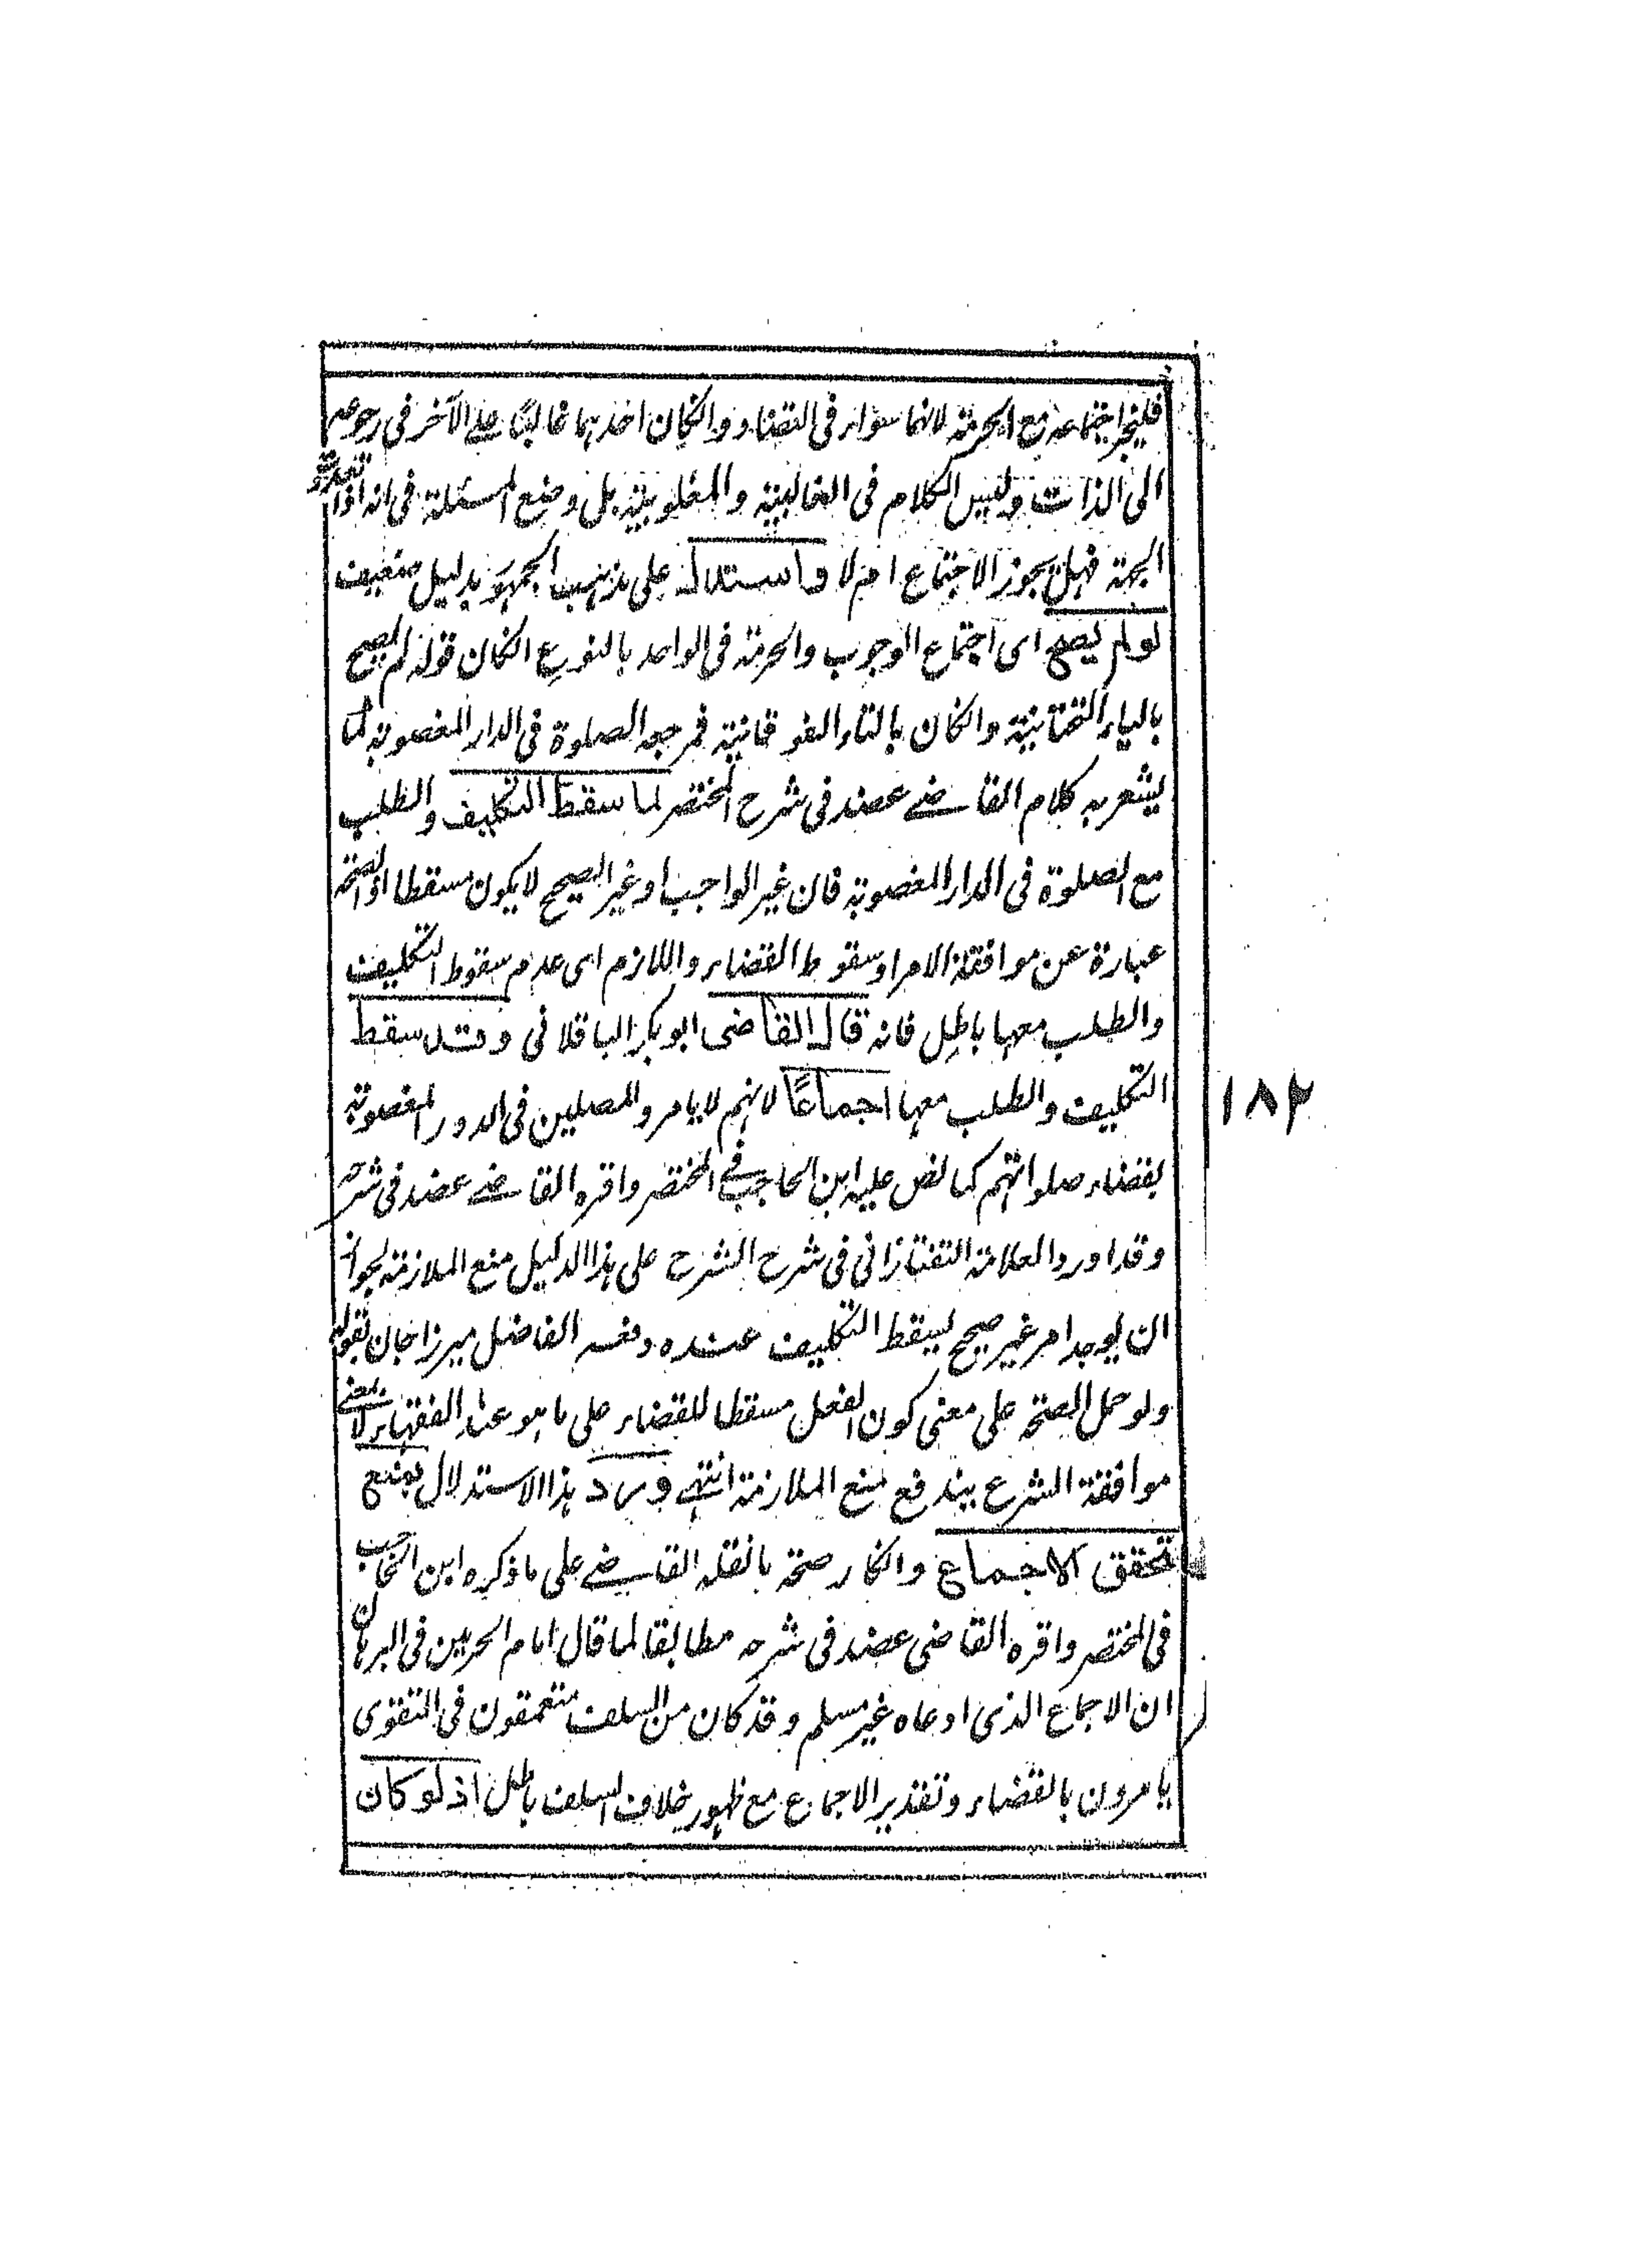 فليجز اجتماعه مع الحرمة لانهما سواء فى التضاد وان كان احدهما غالبًا على الآخر فى رجوعه
الى الذات وليس الكلام فى الغالبية والمغلوبية بل وضع المسئلة فى انه اذا تعددت
الجهة فهل يجوز الاجتماع ام لا واستدل على مذهب الجمهور بدليل ضعيف
لو لم يصح اى اجتماع الوجوب والحرمة فى الواحد بالنوع ان كان قوله لم يصح
بالياء التحتانية وان كان بالتاء الفوقانية فمرجعه الصلوة فى الدار المغصوبة كما
يشعر به كلام القاضى عضد فى شرح المختصر لما سقط التكليف والطلب
مع الصلوة فى الدار المغصوبة فان غير الواجب او غير الصحيح لا يكون مسقطا اذ الصحة
عبارة عن موافقة الامر او سقوط القضاء واللازم اى عدم سقوط التكليف
والطلب معها باطل فانه قال القاضى ابو بكر الباقلانى وقد سقط
التكليف والطلب معها اجماعًا لانهم لا يامروا المصلين فى الدور المغصوبة
بقضاء صلواتهم كما نص عليه ابن الحاجب فى المختصر واقره القاضى عضد فى شرحه
وقد اورد العلامة التفتازانى فى شرح الشرح على هذا الدليل منع الملازمة لجواز
ان يوجد امر غير صحيح يسقط التكليف عنده دفعه الفاضل ميرزا جان بقوله
ولو حمل الصحة على معنى كون الفعل مسقطا للقضاء على ما هو عند الفقهاء لا بمعنى
موافقة الشرع يندفع منع الملازمة انتهى ورد هذا الاستدلال بمنع
تحقق الاجماع وانكار صحة ما نقله القاضى على ما ذكره ابن الحاجب
فى المختصر واقره القاضى عضد فى شرحه مطابقا لما قال امام الحرمين فى البرهان
ان الاجماع الذى ادعاه غير مسلم وقد كان من السلف متعمقون فى التقوى
يامرون بالقضاء وتقدير الاجماع مع ظهور خلاف السلف باطل اذ لو كان
١٨٢